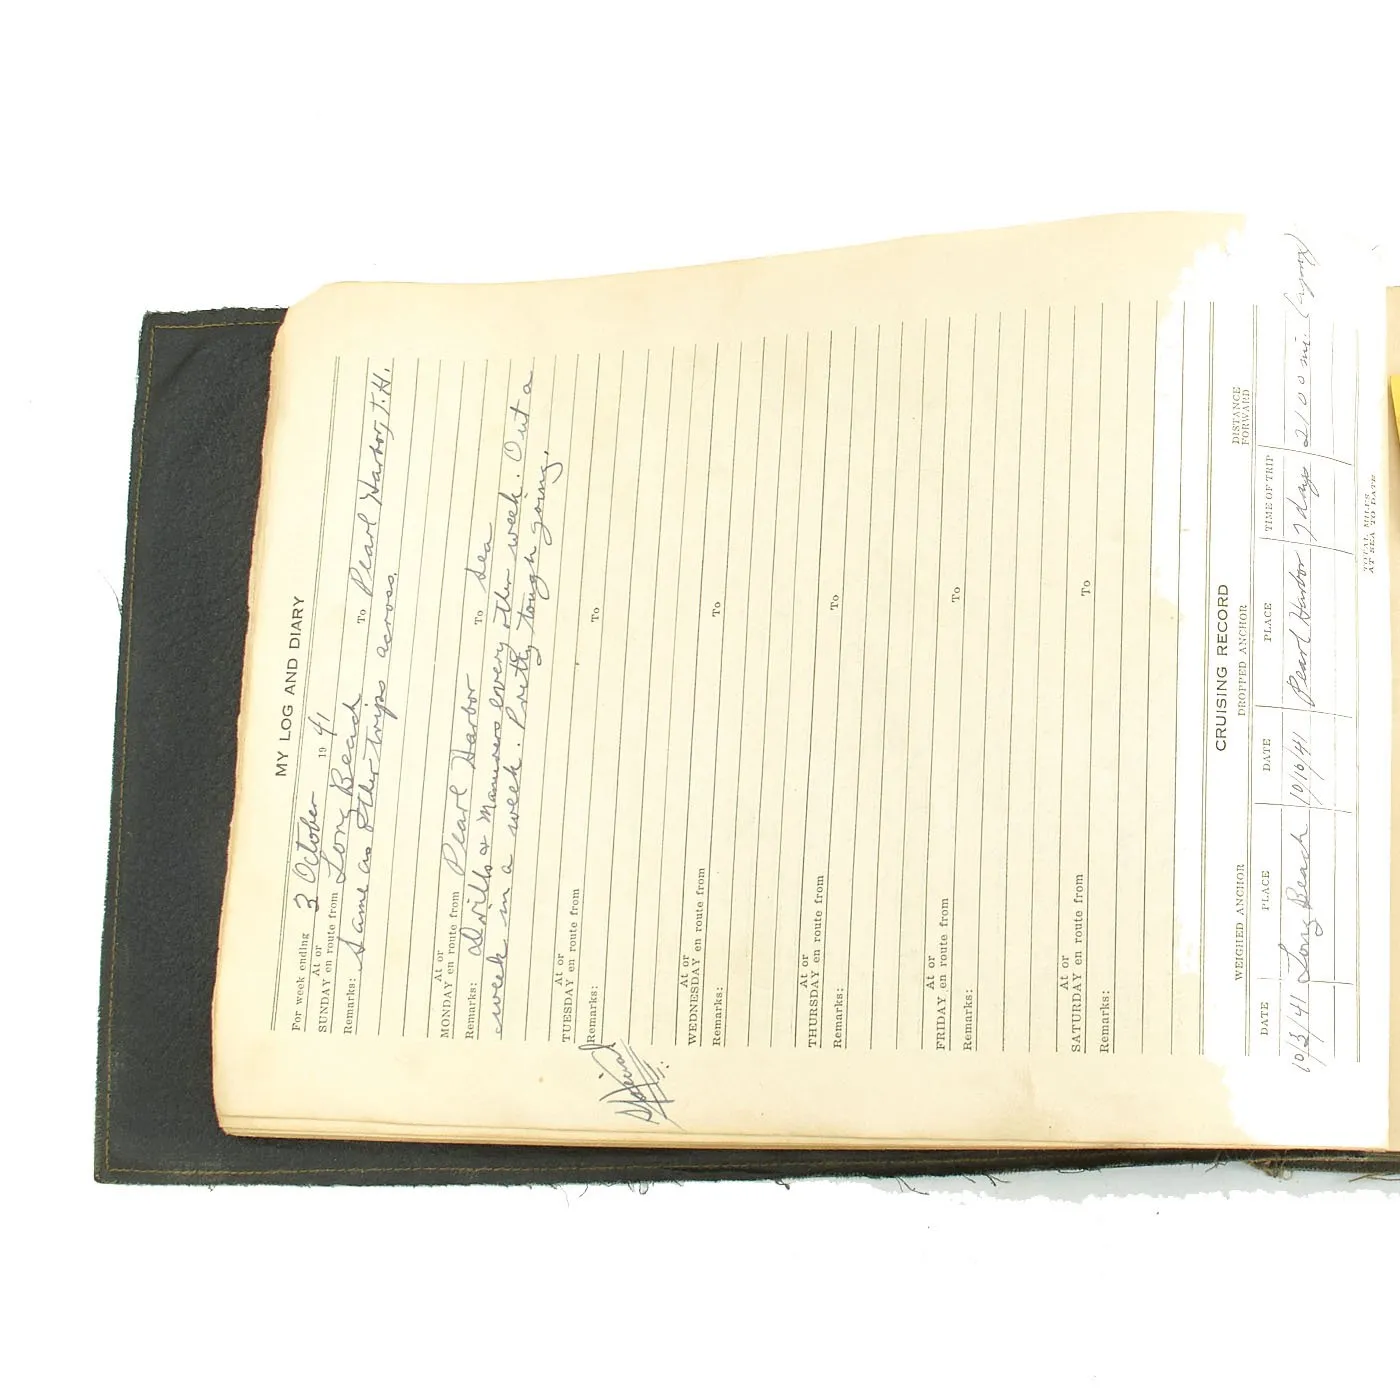 MY LOG AND DIARY
For week ending 3 October 1941
At or
SUNDAY en route from Long Beach To Pearl Harbor, T.H.
Remarks: Same as other trips across.
At or
MONDAY en route from Pearl Harbor To Sea
Remarks: Drills & Manuvers every other week. Out a
week in a week. Pretty tough going.
At or
TUESDAY en route from To
Remarks:
At or
WEDNESDAY en route from To
Remarks:
At or
THURSDAY en route from To
Remarks:
At or
FRIDAY en route from To
Remarks:
At or
SATURDAY en route from To
Remarks:
CRUISING RECORD
WEIGHED ANCHOR DROPPED ANCHOR DISTANCE
FORWARD
DATE PLACE DATE PLACE TIME OF TRIP
10/3/41 Long Beach 10/10/41 Pearl Harbor 7 days 2100 mi.
TOTAL MILES
AT SEA TO DATE